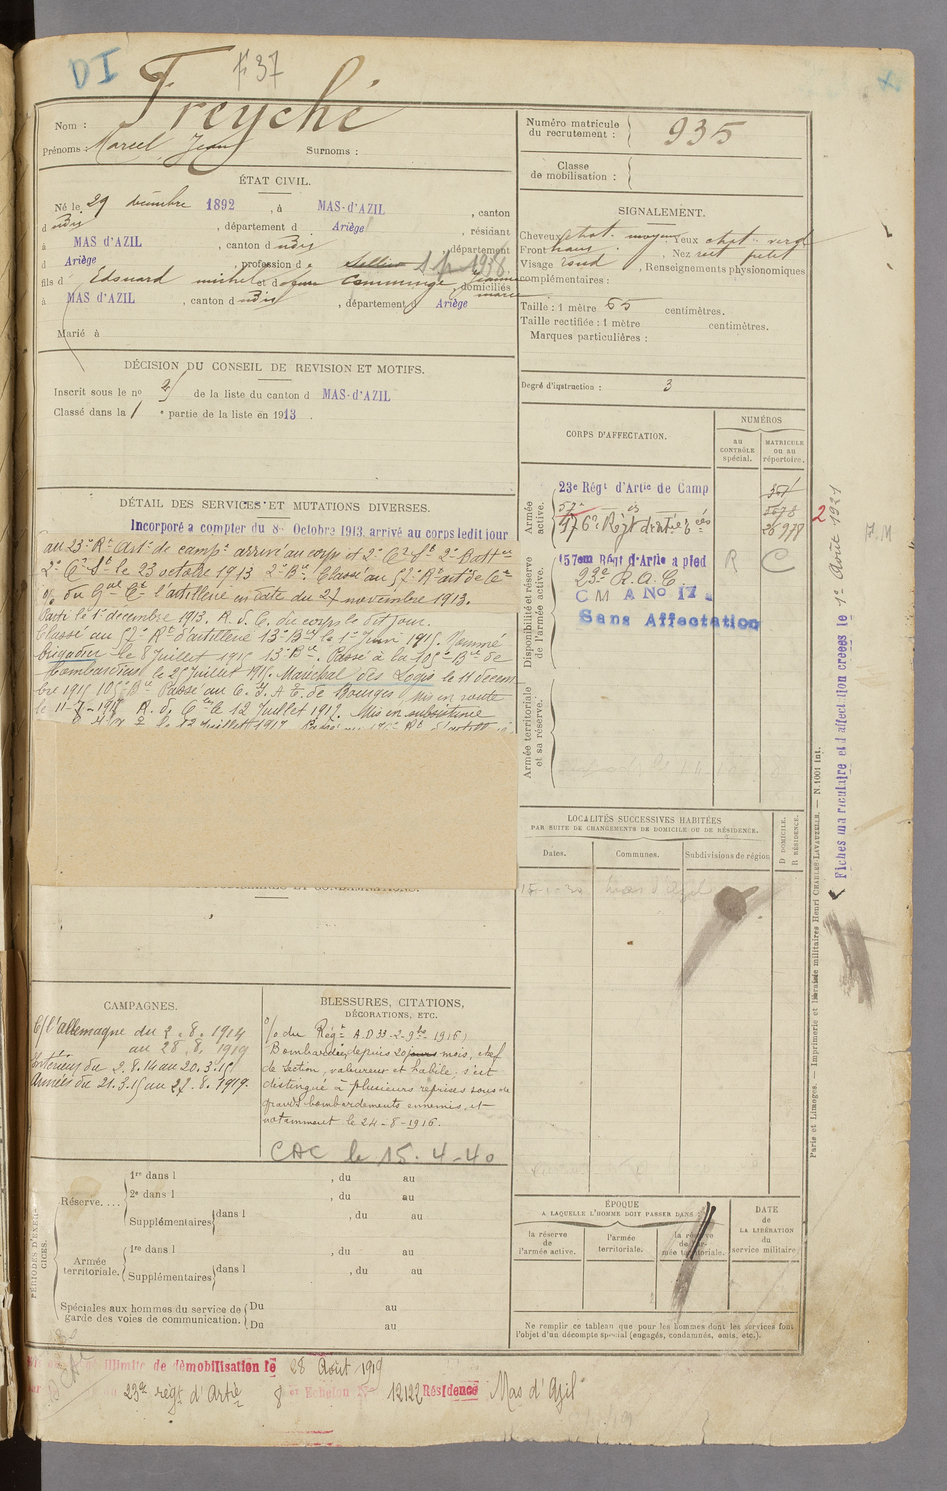 DI
F 37
Freyché
Nom :
Prénoms : Marcel Jean Surnoms :
ÉTAT CIVIL.
Né le 29 décembre 1892, à MAS-d'AZIL, canton
d udis, département d Ariège, résidant
à MAS d'AZIL, canton d udis, département
d Ariège, profession d sellier
fils d Edouard michel et d Comminge Jeanne marie, domiciliés
à MAS d'AZIL, canton d udis, département d Ariège
Marié à
DÉCISION DU CONSEIL DE REVISION ET MOTIFS.
Inscrit sous le no 2 de la liste du canton d MAS-d'AZIL
Classé dans la 1e partie de la liste en 1913.
DÉTAIL DES SERVICES ET MUTATIONS DIVERSES.
Incorporé à compter du 8 Octobre 1913, arrivé au corps ledit jour
au 23e Rt Artie de campe arrivé au corps et 2e Cr St 2e Batt
2e Cr St le 23 octobre 1913 2e Bie. Classé au 57e Rt artie de Cne
o/o du Gal Ct l'artillerie en date du 27 novembre 1913.
Parti le 1er décembre 1913. A. d. C. au corps le dit jour.
Classé au 57e Rt d'artillerie 13e Bie le 1er Juin 1915. Nommé
Brigadier le 8 Juillet 1915 13e Bie. Passé à la 105e Bie de
Bombardiers le 25 Juillet 1915. Maréchal des Logis le 11 décem
bre 1915 105e Bie Passé au C. d. A. T. de Bourges Mis en route
le 11-7-1917 A. d. C. le 12 Juillet 1917. Mis en subsistance
CAMPAGNES.
C/ l'allemagne du 2.8.1914
au 28.8.1919
Intérieur du 2.8.14 au 20.3.15
Armées du 21.3.15 au 27.8.1919.
BLESSURES, CITATIONS,
DÉCORATIONS, ETC.
o/o du Régt A.D 33-2-9bre 1916)
Bombardier depuis 20 jours mois, chef
de Section, valeureux et habile; s'est
distingué à plusieurs reprises sous de
gravés bombardements ennemis, et
notamment le 24-8-1916.
CAC le 15.4-40
PÉRIODES D'EXERCICES.
Réserve....
1re dans l , du au
2e dans l , du au
Supplémentaires dans l , du au
Armée territoriale.
1re dans l , du au
Supplémentaires dans l , du au
Spéciales aux hommes du service de garde des voies de communication.
Du au
Du au
illimité de démobilisation le 28 Août 1919
23e régt d'Artie 8 er Echelon N° 12122 Résidence Mas d'Azil
Numéro matricule
du recrutement : 935
Classe
de mobilisation :
SIGNALEMENT.
Cheveux chat. moyens Yeux chat. verd
Front haut. Nez rect petit
Visage rond, Renseignements physionomiques
complémentaires :
Taille : 1 mètre 65 centimètres.
Taille rectifiée : 1 mètre centimètres.
Marques particulières :
Degré d'instruction : 3
CORPS D'AFFECTATION.
NUMÉROS
AU CONTRÔLE spécial.
MATRICULE ou au répertoire.
Armée active.
23e Régt d'Artie de Camp
57e
176e Régt d'artie
Disponibilité et réserve de l'armée active.
157em Régt d'Artie a pied R C
23e R.A.C.
CM A No 17
Sans Affectation
Armée territoriale et sa réserve.
LOCALITÉS SUCCESSIVES HABITÉES
PAR SUITE DE CHANGEMENTS DE DOMICILE OU DE RÉSIDENCE.
Dates. Communes. Subdivisions de région
D DOMICILE.
R RÉSIDENCE.
ÉPOQUE
A LAQUELLE L'HOMME DOIT PASSER DANS :
la réserve de l'armée active.
l'armée territoriale.
la réserve de l'armée territoriale.
DATE
de
LA LIBÉRATION
du
service militaire.
Ne remplir ce tableau que pour les hommes dont les services font
l'objet d'un décompte spécial (engagés, condamnés, omis, etc.).
Paris et Limoges. — Imprimerie et librairie militaires Henri CHARLES-LAVAUZELLE. — N. 1001 int.
2 Fiches matriculaire et d'affectation créées le 1er Août 1921